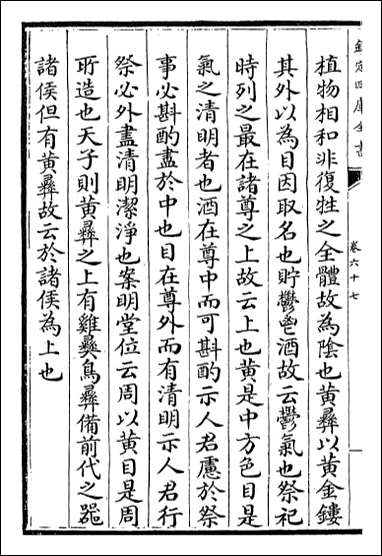 欽定四庫全書
卷六十七
植物相和非復牲之全體故為陰也黃彞以黃金鏤
其外以為目因取名也貯鬱鬯酒故云鬱氣也祭祀
時列之最在諸尊之上故云上也黃是中方色目是
氣之清明者也酒在尊中而可斟酌示人君慮於祭
事必斟酌盡於中也目在尊外而有清明示人君行
祭必外盡清明潔淨也案明堂位云周以黃目是周
所造也天子則黃彞之上有雞彞鳥彞備前代之器
諸侯但有黃彞故云於諸侯為上也